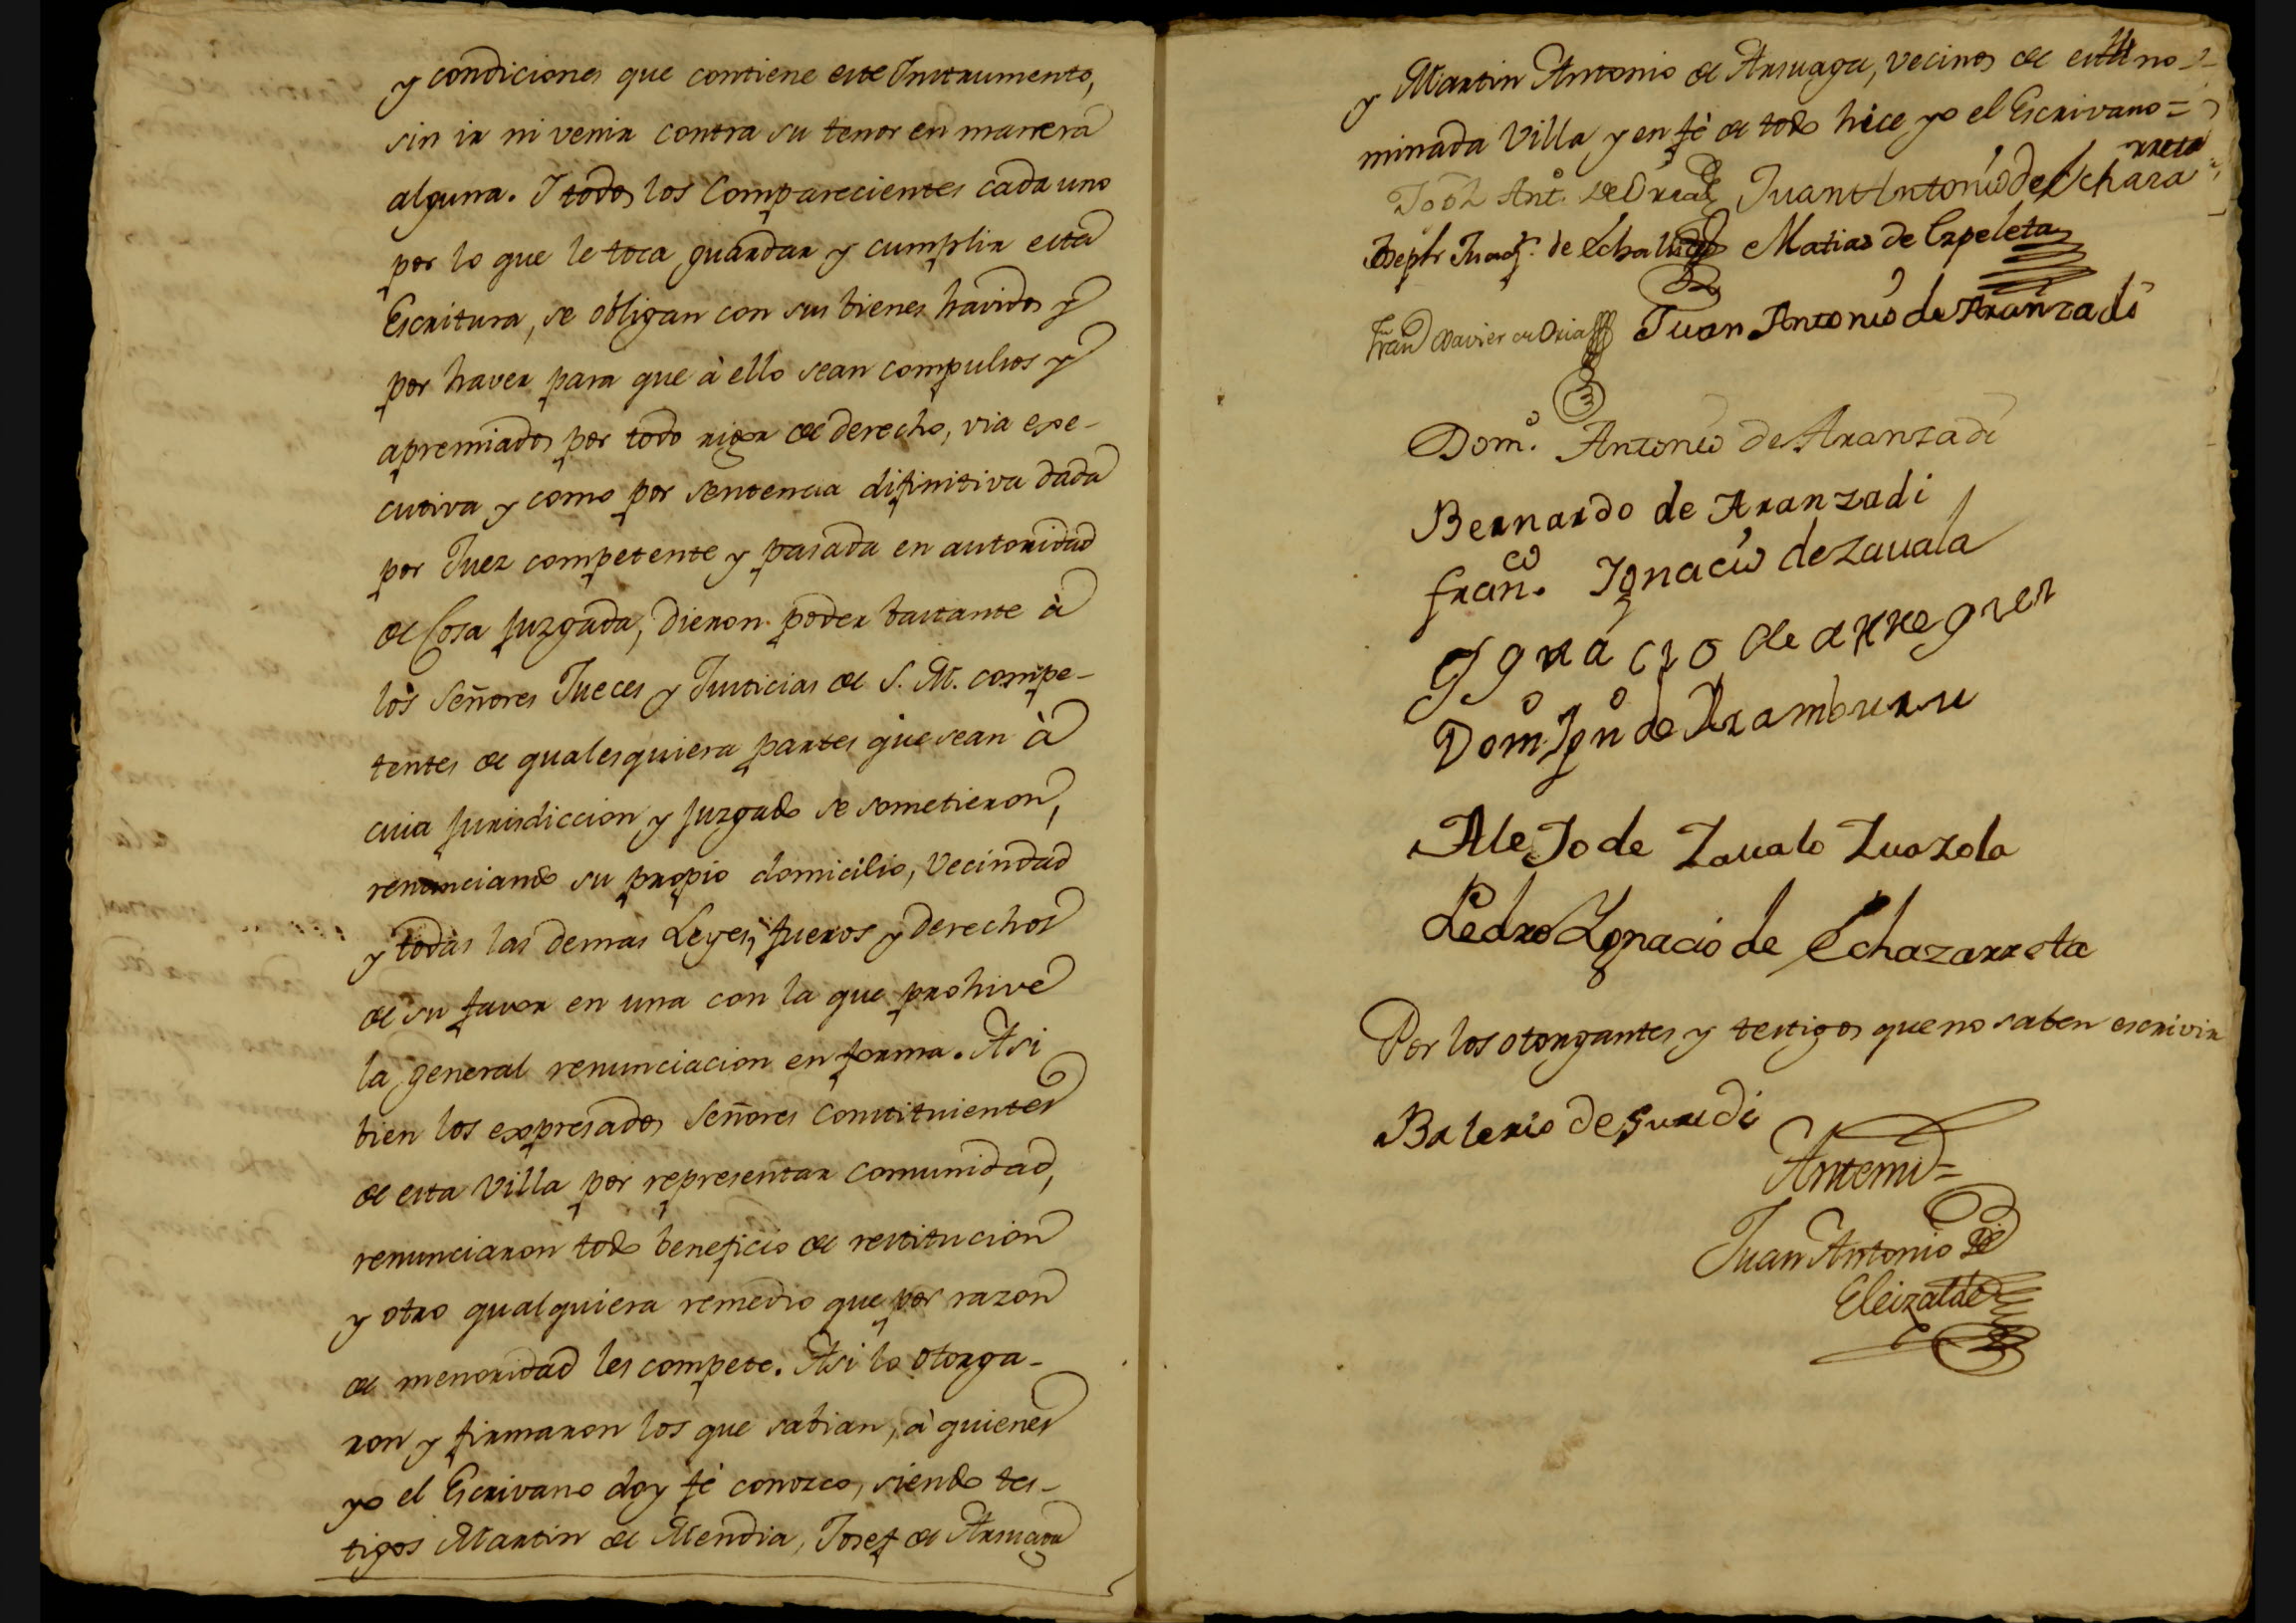 y condiciones que contiene este Instrumento,
sin ir ni venir contra su tenor en manera
alguna. I todos los Comparecientes cada uno
por lo que le toca guardar y cumplir esta
Escritura, se obligan con sus bienes havidos y
por haver para que à ello sean compulsos y
apremiados por todo rigor de derecho, via exe-
cutiva y como por sentencia difinitiva dada
por Juez competente y pasada en autoridad
de Cosa juzgada, dieron poder bastante à
los Señores Jueces y Justicias de S. M. compe-
tentes de qualesquiera partes que sean à
cuia jurisdiccion y juzgado se sometieron,
renunciando su propio domicilio, Vecindad
y todas las demas Leyes, fueros y derechos
de su favor en una con la que prohive
la general renunciacion en forma. Asi
bien los expresados Señores Constituientes
de esta Villa por representar comunidad,
renunciaron todo beneficio de restitucion
y otro qualquiera remedio que por razon
de menoridad les compete. Asi lo otorga-
ron y firmaron los que sabian, à quienes
yo el Escrivano doy fé conozco, siendo tes-
tigos Martin de Mendia, Josef de Arsuaga
y Martin Antonio de Arsuaga, vecinos de esta no-
minada Villa y en fé de todo hice yo el Escrivano =
Juan Antonio de Echaza
rreta
Joseph Juaq.n de Matias de Ezpeleta
Fran.co Xavier de Oria Juan Antonio de Aranzadi
Dom.o Antonio de Aranzadi
Bernardo de Aranzadi
fran.co Ignacio de Zavala
Ygnacio de arregrer
Dom.o Ign.o de Aramburu
AleJo de Zavala Zuazola
Pedro Ignacio de Echazarreta
Por los otorgantes y testigos que no saben escrivir
Balerio de Surudi
Antemi =
Juan Antonio de
Eleizalde